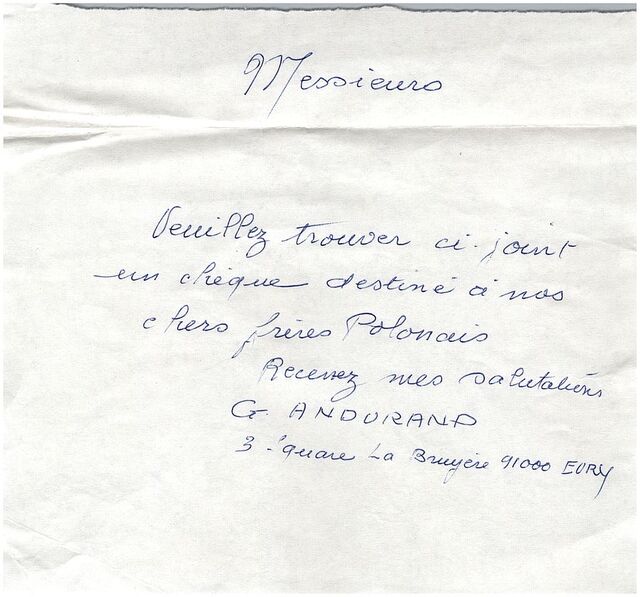 Messieurs
Veuillez trouver ci-joint
un chèque destiné à nos
chers frères Polonais
Recevez mes salutations
G. ANDURAND
3 Square La Bruyère 91000 EVRY